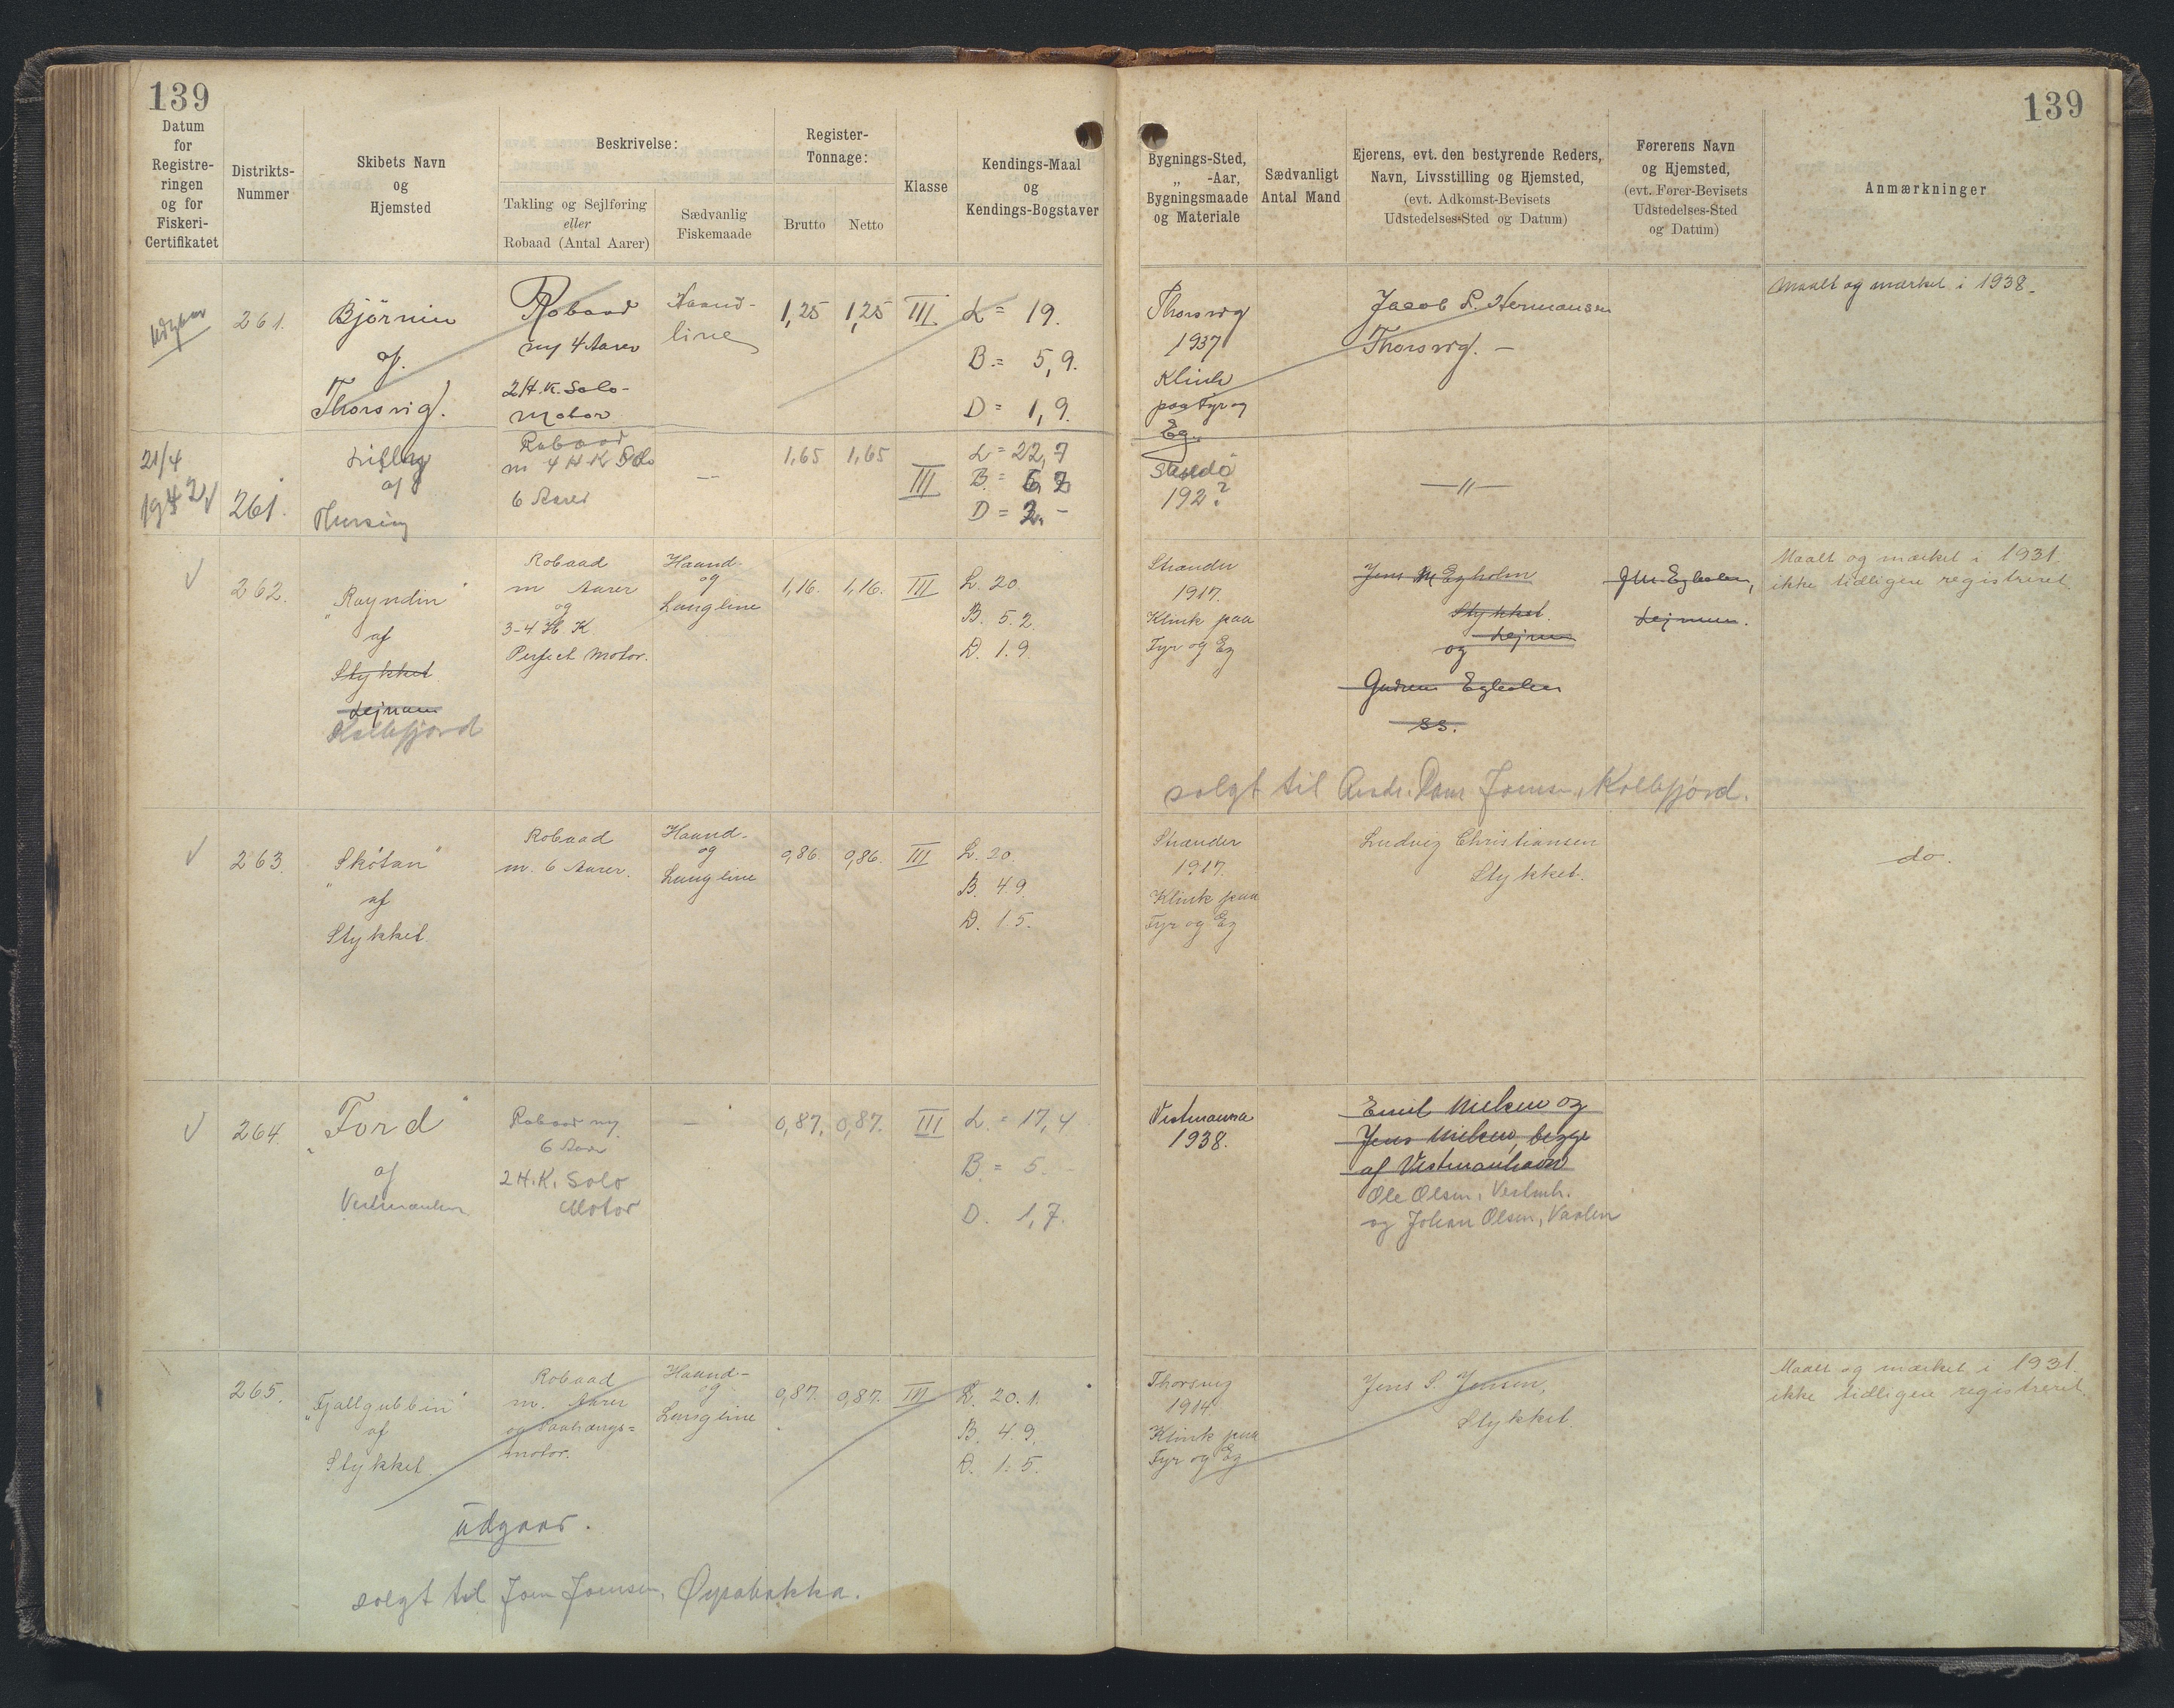 139
139
Datum
for
Registre-
ringen
og for
Fiskeri-
Certifikatet
Distrikts-
Nummer
Skibets Navn
og
Hjemsted
Beskrivelse:
Takling og Sejlføring
eller
Robaad (Antal Aarer)
Sædvanlig
Fiskemaade
Register-
Tonnage:
Brutto
Netto
Klasse
Kendings-Maal
og
Kendings-Bogstaver
Bygnings-Sted,
„ -Aar,
Bygningsmaade
og Materiale
Sædvanligt
Antal Mand
Ejerens, evt. den bestyrende Reders,
Navn, Livsstilling og Hjemsted,
(evt. Adkomst-Bevisets
Udstedelses-Sted og Datum)
Førerens Navn
og Hjemsted,
(evt. Fører-Bevisets
Udstedelses-Sted
og Datum)
Anmærkninger
Udgaar
261.
Björnin
af
Thorsvig.
Robaad
m 4 Aarer
2 H.K. Solo-
Motor
Haand-
line
1,25
1,25
III
L = 19.
B = 5,9.
D = 1,9.
Thorsvig
1937
Klink
paa Fyr og
Eg.
Jacob P. Hermansen
Thorsvig. —
Maalt og mærket i 1938.
21/4
1942
261.
af
Robaad
m 4 H K Solo
6 Aarer
—
1,65
1,65
III
L = 22,7
B = 6,7
D = 2. -
Sandö
192?
—〃—
262.
"Royndin"
af
Stykket
Lejnum
Kollefjord
Robaad
m Aarer
og
3-4 H. K
Perfect Motor.
Haand-
og
Langline
1,16.
1,16.
III
L. 20
B. 5.2.
D. 1.9.
Strander
1917.
Klink paa
Fyr og Eg
Jens M Egholm
Stykket.
Lejnum
og
Gudrun Egholm
ss.
J M Egholm,
Lejnum.
Maalt og mærket i 1931
ikke tidligere registreret.
solgt til Andr. Dan. Joensen, Kollefjord.
263.
"Skötan"
af
Stykket
Robaad
m. 6 Aarer.
Haand-
og
Langline
0,86
0,86.
III
L. 20.
B. 4.9.
D. 1.5.
Strander
1917.
Klink paa
Fyr og Eg
Ludvig Christiansen
Stykket.
do.
264.
"Ford"
af
Vestmanhavn
Robaad m
6 Aarer
2 H.K. Solo
Motor
—
0,87.
0,87.
III
L. = 17,4
B. = 5. -
D. 1,7.
Vestmanna
1938.
Emil Nielsen og
Jens Nielsen, begge
af Vestmanhavn
Ole Olsen, Vestmh.
og Johan Olsen, Vaalen
265.
"Fjallgubbin"
af
Stykket.
Robaad
m. Aarer
og Paahængs=
motor.
Haand-
og
Langline
0,87.
0,87.
III
L. 20.1.
B. 4.9.
D. 1.5.
Thorsvig
1914
Klink paa
Fyr og Eg
Jens S. Jensen,
Stykket.
Maalt og mærket i 1931.
ikke tidligere registreret.
Udgaar.
solgt til Joen Joensen, Øyrabakka.